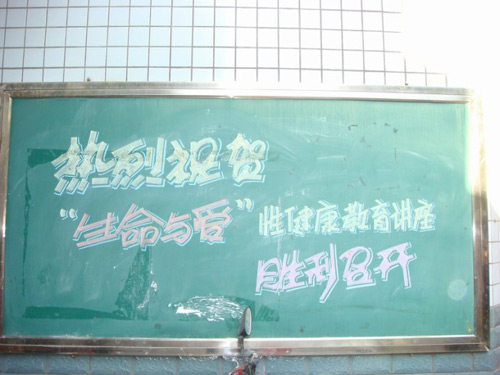 热烈祝贺
“生命与爱”性健康教育讲座
胜利召开